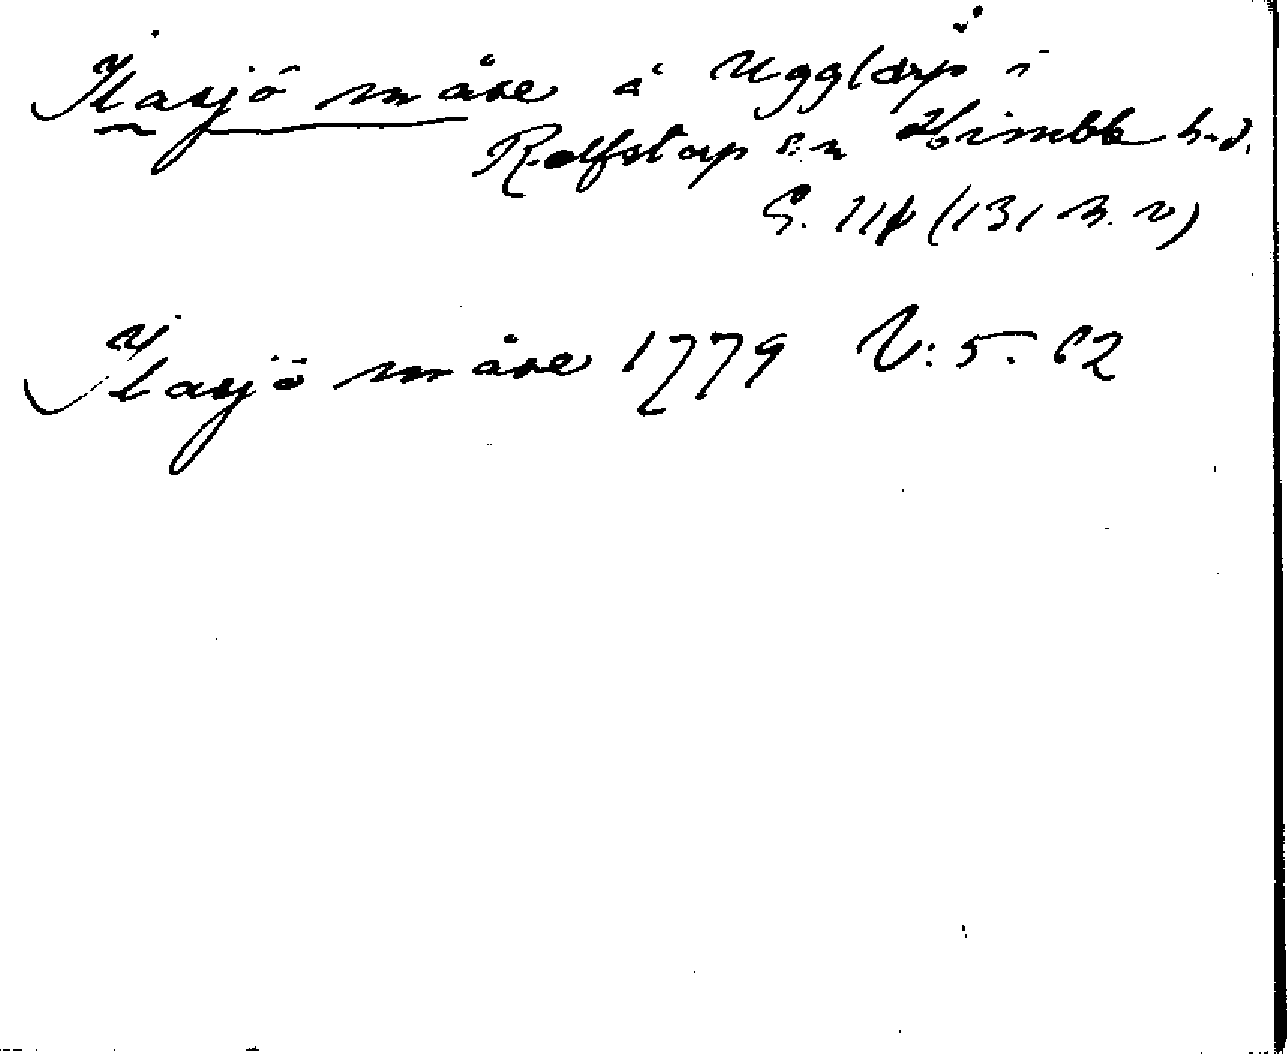 Kasjö måse å Ugglarp i
Rolfstorp sn Himble hd.
S. 11 (131 n. v)
Kasjö måse 1779 V: 5. 62